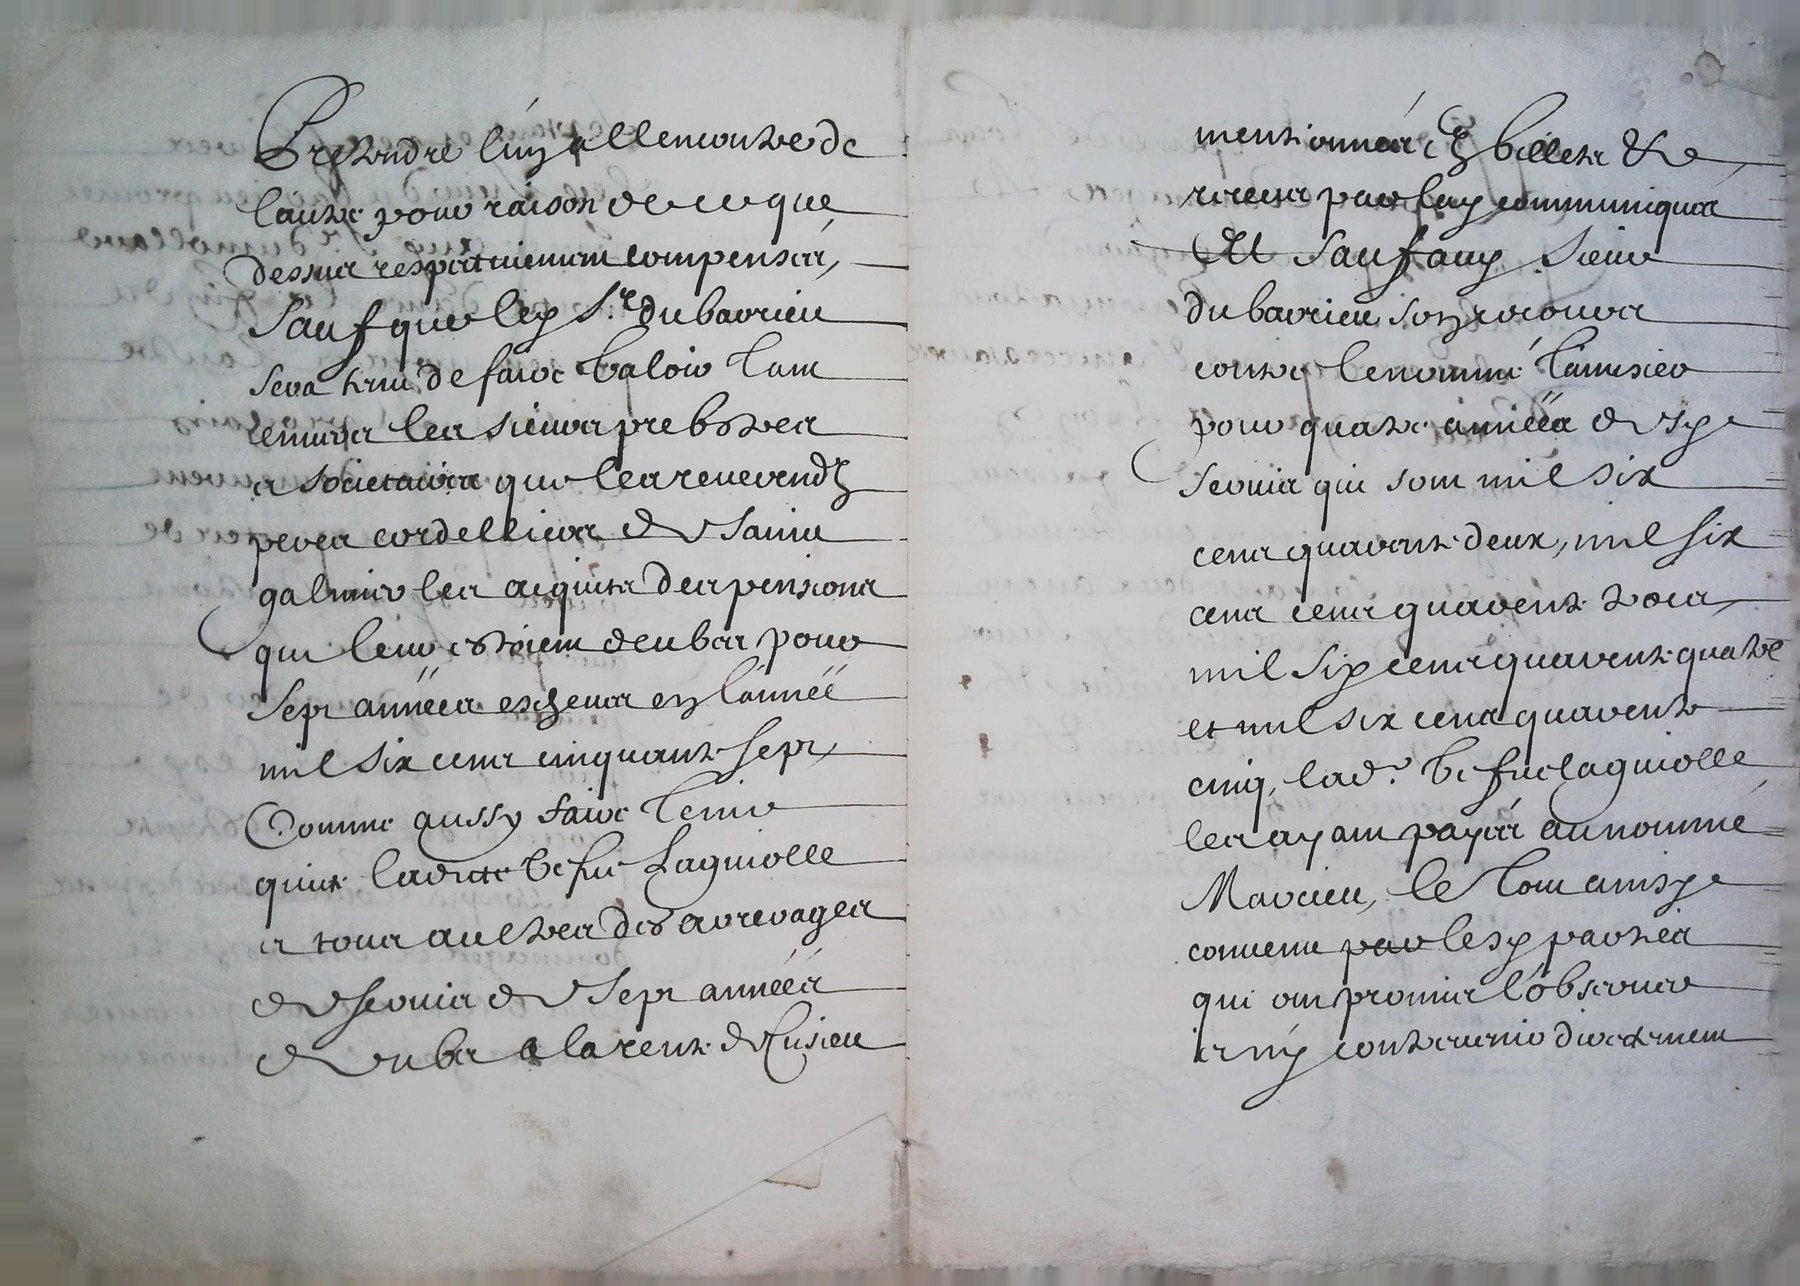 Prethendre luy a llencontre de
lautre pour raison de ce que
dessus respectivement compensés,
Sauf que ley Sr. dubarrieu
sera tenu de faire valoir tant
envers les sieurs prebstres
et societaires que les reverendz
peres cordelliers de Saint
galmier les acquits des pensions
qui leur estoient deubes pour
sept années escheues en lannée
mil six cens cinquante sept,
Comme aussy faire tenir
quitte ladicte Vefue Laguiolle
et tous aultres des arrerages
de servis de Sept années
deubs a la rente de Cusieu
mentionnés ez billets &
receus par luy communiqués
Et Sauf auy Sieur
dubarrieu son recours
contre le nommé Tamisier
pour quatre années desy
servis qui sont mil six
cens quarente deux, mil six
cens cens quarente trois,
mil six cens quarente quatre
et mil six cens quarente
cinq, lad. Ve fue laguiolle
les ayant payés au nommé
Marcieu, le tout ainsy
convenu par lesy parties
qui ont promis l'observer
et ny contrevenir directement